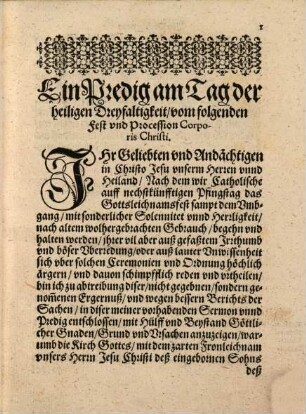 1
Ein Predig am Tag der
heiligen Dreyfaltigkeit/ vom folgenden
Fest vnd Procession Corpo-
ris Christi.
IHr Geliebten vnd Andächtigen
in Christo Jesu vnserm Herren vnnd
Heiland/ Nach dem wir Catholische
auff nechstkünfftigen Pfingstag das
Gottsleichnamsfest sampt dem Vmb-
gang/ mit sonderlicher Solennitet vnnd Herrligkeit/
nach altem wolhergebrachten Gebrauch/ begehn vnd
halten werden/ jhrer vil aber auß gefaßtem Irrthumb
vnd böser Vberredung/ oder auß lauter Vnwissenheit
sich ober solchen Ceremonien vnd Ordnung höchlich
ärgern/ vnd dauon schimpfflich reden vnd vrtheilen/
bin ich zu abtreibung diser/ nicht gegebnen/ sondern ge-
nom̃enen Ergernuß/ vnd wegen bessern Berichts der
Sachen/ in diser meiner vorhabenden Sermon vnnd
Predig entschlossen/ mit Hülff vnd Beystand Göttli-
cher Gnaden/ Grund vnd Vrsachen anzuzeigen/ war-
umb die Kirch Gottes/ mit dem zarten Fronleichnam
vnsers Herrn Jesu Christi deß eingebornen Sohns
deß